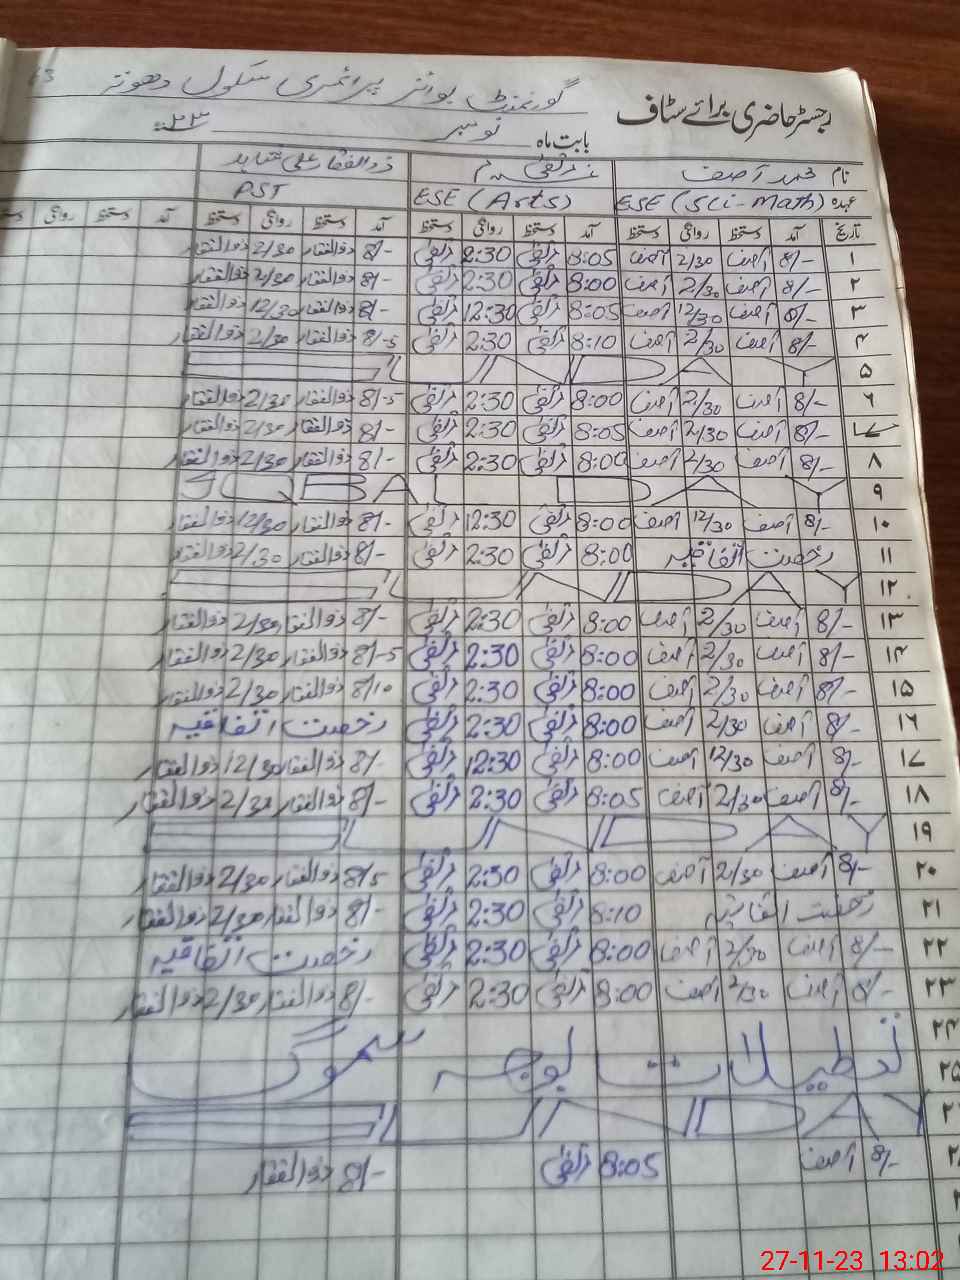 رجسٹر حاضری برائے سٹاف
گورنمنٹ بوائز پرائمری سکول دھونتر
بابت ماہ نومبر ۲۰۲۳ء
نام محمد آصف زلفی ذوالفقار علی شاہد
عہدہ ESE (Sci-Math) ESE (Arts) PST
تاریخ آمد دستخط روانگی دستخط آمد دستخط روانگی دستخط آمد دستخط روانگی دستخط آمد دستخط روانگی دستخط
۱ 8/- آصف 2/30 آصف 8:05 زلفی 2:30 زلفی 8/- ذوالفقار 2/30 ذوالفقار
۲ 8/- آصف 2/30 آصف 8:00 زلفی 2:30 زلفی 8/- ذوالفقار 2/30 ذوالفقار
۳ 8/- آصف 12/30 آصف 8:05 زلفی 12:30 زلفی 8/- ذوالفقار 12/30 ذوالفقار
۴ 8/- آصف 2/30 آصف 8:10 زلفی 2:30 زلفی 8/-5 ذوالفقار 2/30 ذوالفقار
۵ SUNDAY
۶ 8/- آصف 2/30 آصف 8:00 زلفی 2:30 زلفی 8/-5 ذوالفقار 2/30 ذوالفقار
۷ 8/- آصف 2/30 آصف 8:05 زلفی 2:30 زلفی 8/- ذوالفقار 2/30 ذوالفقار
۸ 8/- آصف 2/30 آصف 8:00 زلفی 2:30 زلفی 8/- ذوالفقار 2/30 ذوالفقار
۹ IQBAL DAY
۱۰ 8/- آصف 12/30 آصف 8:00 زلفی 12:30 زلفی 8/- ذوالفقار 12/30 ذوالفقار
۱۱ رخصت اتفاقیہ 8:00 زلفی 2:30 زلفی 8/- ذوالفقار 2/30 ذوالفقار
۱۲ SUNDAY
۱۳ 8/- آصف 2/30 آصف 8:00 زلفی 2:30 زلفی 8/- ذوالفقار 2/30 ذوالفقار
۱۴ 8/- آصف 2/30 آصف 8:00 زلفی 2:30 زلفی 8/-5 ذوالفقار 2/30 ذوالفقار
۱۵ 8/- آصف 2/30 آصف 8:00 زلفی 2:30 زلفی 8/10 ذوالفقار 2/30 ذوالفقار
۱۶ 8/- آصف 2/30 آصف 8:00 زلفی 2:30 زلفی رخصت اتفاقیہ
۱۷ 8/- آصف 12/30 آصف 8:00 زلفی 12:30 زلفی 8/- ذوالفقار 12/30 ذوالفقار
۱۸ 8/- آصف 2/30 آصف 8:05 زلفی 2:30 زلفی 8/- ذوالفقار 2/30 ذوالفقار
۱۹ SUNDAY
۲۰ 8/- آصف 2/30 آصف 8:00 زلفی 2:30 زلفی 8/5 ذوالفقار 2/30 ذوالفقار
۲۱ رخصت اتفاقیہ 8:10 زلفی 2:30 زلفی 8/- ذوالفقار 2/30 ذوالفقار
۲۲ 8/- آصف 2/30 آصف 8:00 زلفی 2:30 زلفی رخصت اتفاقیہ
۲۳ 8/- آصف 2/30 آصف 8:00 زلفی 2:30 زلفی 8/- ذوالفقار 2/30 ذوالفقار
۲۴
۲۵ تعطیلات بوجہ سموگ
SUNDAY
8/- آصف 8:05 زلفی 8/- ذوالفقار
27-11-23 13:02